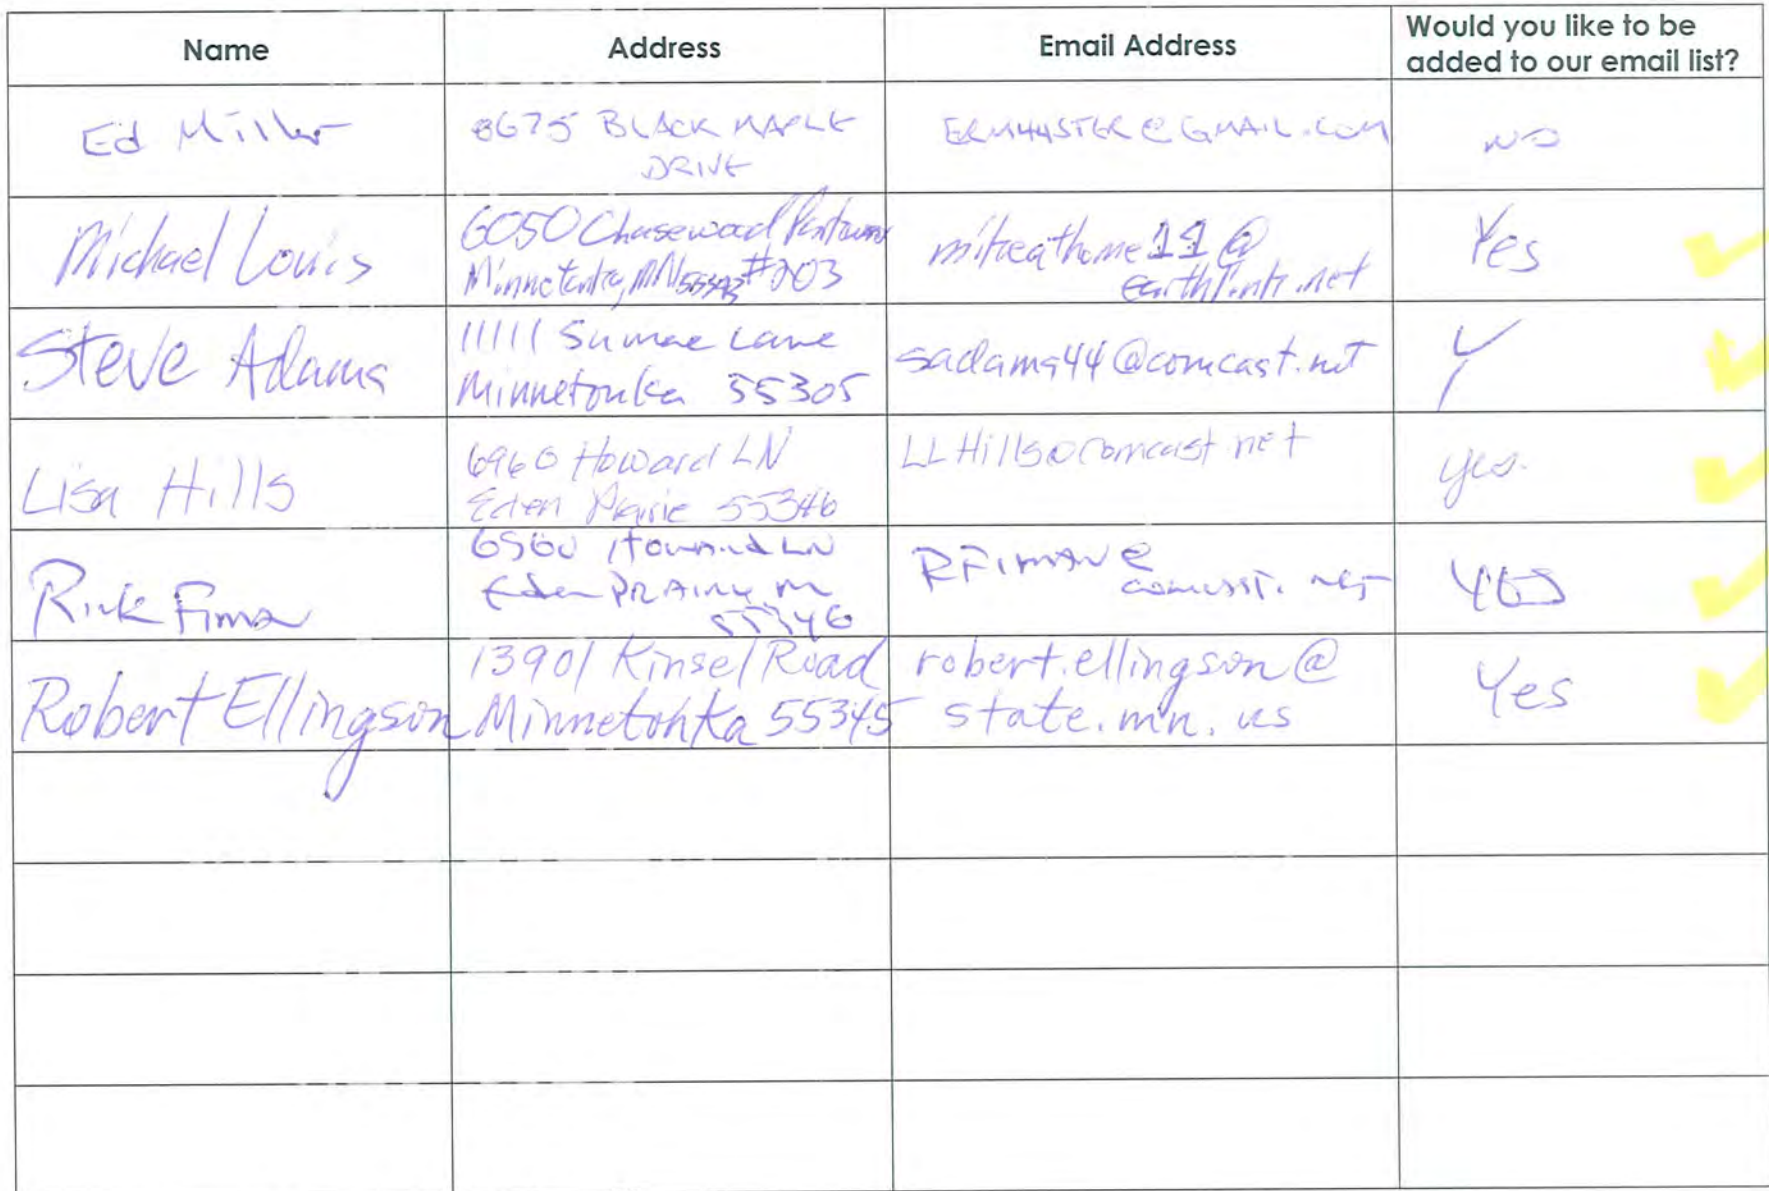 Name Address Email Address Would you like to be
added to our email list?
Ed Miller 8675 BLACK MAPLE
DRIVE
@GMAIL.COM NO
Michael Louis 6050 Chasewood
Minnetonka, MN #203
@
earthlink.net
Yes
Steve Adams 11111 Sumac Lane
Minnetonka 55305
sadams44@comcast.net Y
Lisa Hills 6960 Howard LN
Eden Prairie 55346
LLHills@comcast.net yes.
Rick 6560 Howard LN
Eden PRAIRIE
55346
comcast.net
YES
Robert Ellingson 13901 Kinsel Road
Minnetonka 55345
robert.ellingson@
state.mn.us
Yes